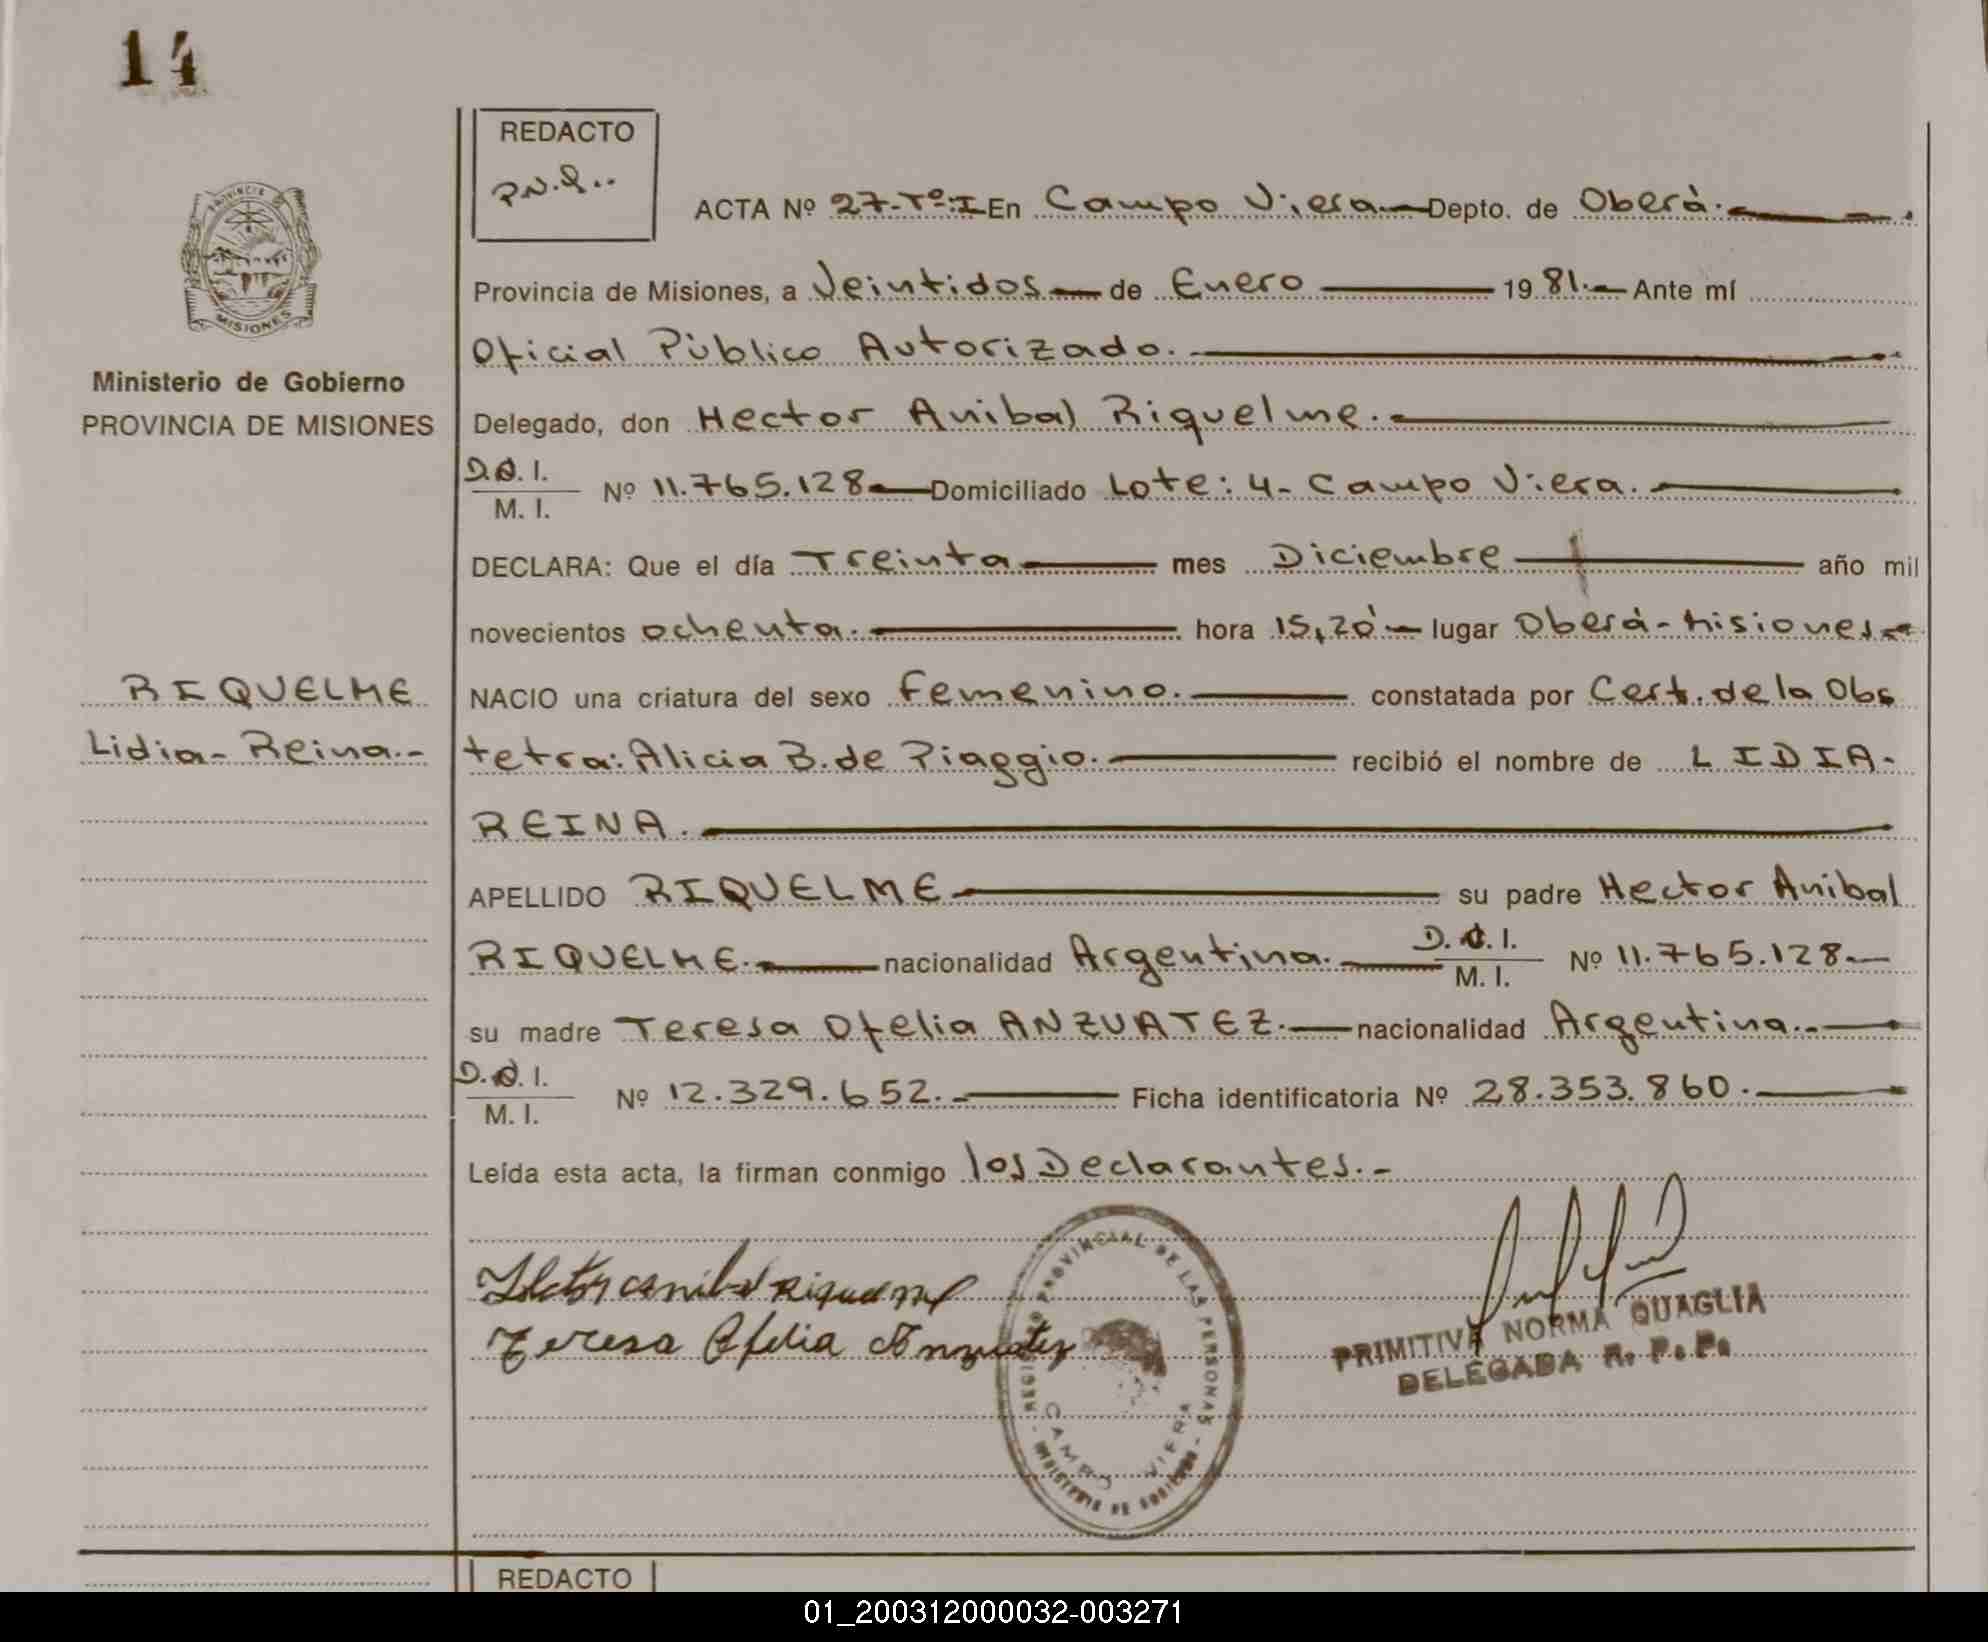 14
REDACTO
P.N.Q..
PROVINCIA
MISIONES
Ministerio de Gobierno
PROVINCIA DE MISIONES
ACTA Nº 27-Tº:I En Campo Viera.— Depto. de Oberá.
Provincia de Misiones, a Veintidos — de Enero — 19 81.— Ante mí
Oficial Público Autorizado.
Delegado, don Hector Anibal Riquelme.
D.N.I.
M. I. Nº 11.765.128 — Domiciliado Lote: 4- Campo Viera.
DECLARA: Que el día Treinta — mes Diciembre — año mil
novecientos ochenta. — hora 15,20' — lugar Oberá-Misiones
RIQUELME
Lidia- Reina.-
NACIO una criatura del sexo femenino. — constatada por Cert. de la Obs
tetra: Alicia B. de Piaggio. — recibió el nombre de LIDIA-
REINA.
APELLIDO RIQUELME — su padre Hector Anibal
RIQUELME. — nacionalidad Argentina. — D.N.I.
M. I. Nº 11.765.128.—
su madre Teresa Ofelia ANZUATEZ. — nacionalidad Argentina..—
D.N.I.
M. I. Nº 12.329.652. — Ficha identificatoria Nº 28.353.860.
Leída esta acta, la firman conmigo los Declarantes.-
Hector anibal Riquelme
Teresa Ofelia Anzuatez
REGISTRO PROVINCIAL DE LAS PERSONAS
CAMPO VIERA
MINISTERIO DE GOBIERNO
PRIMITIVA NORMA QUAGLIA
DELEGADA R. P. P.
REDACTO
01_200312000032-003271